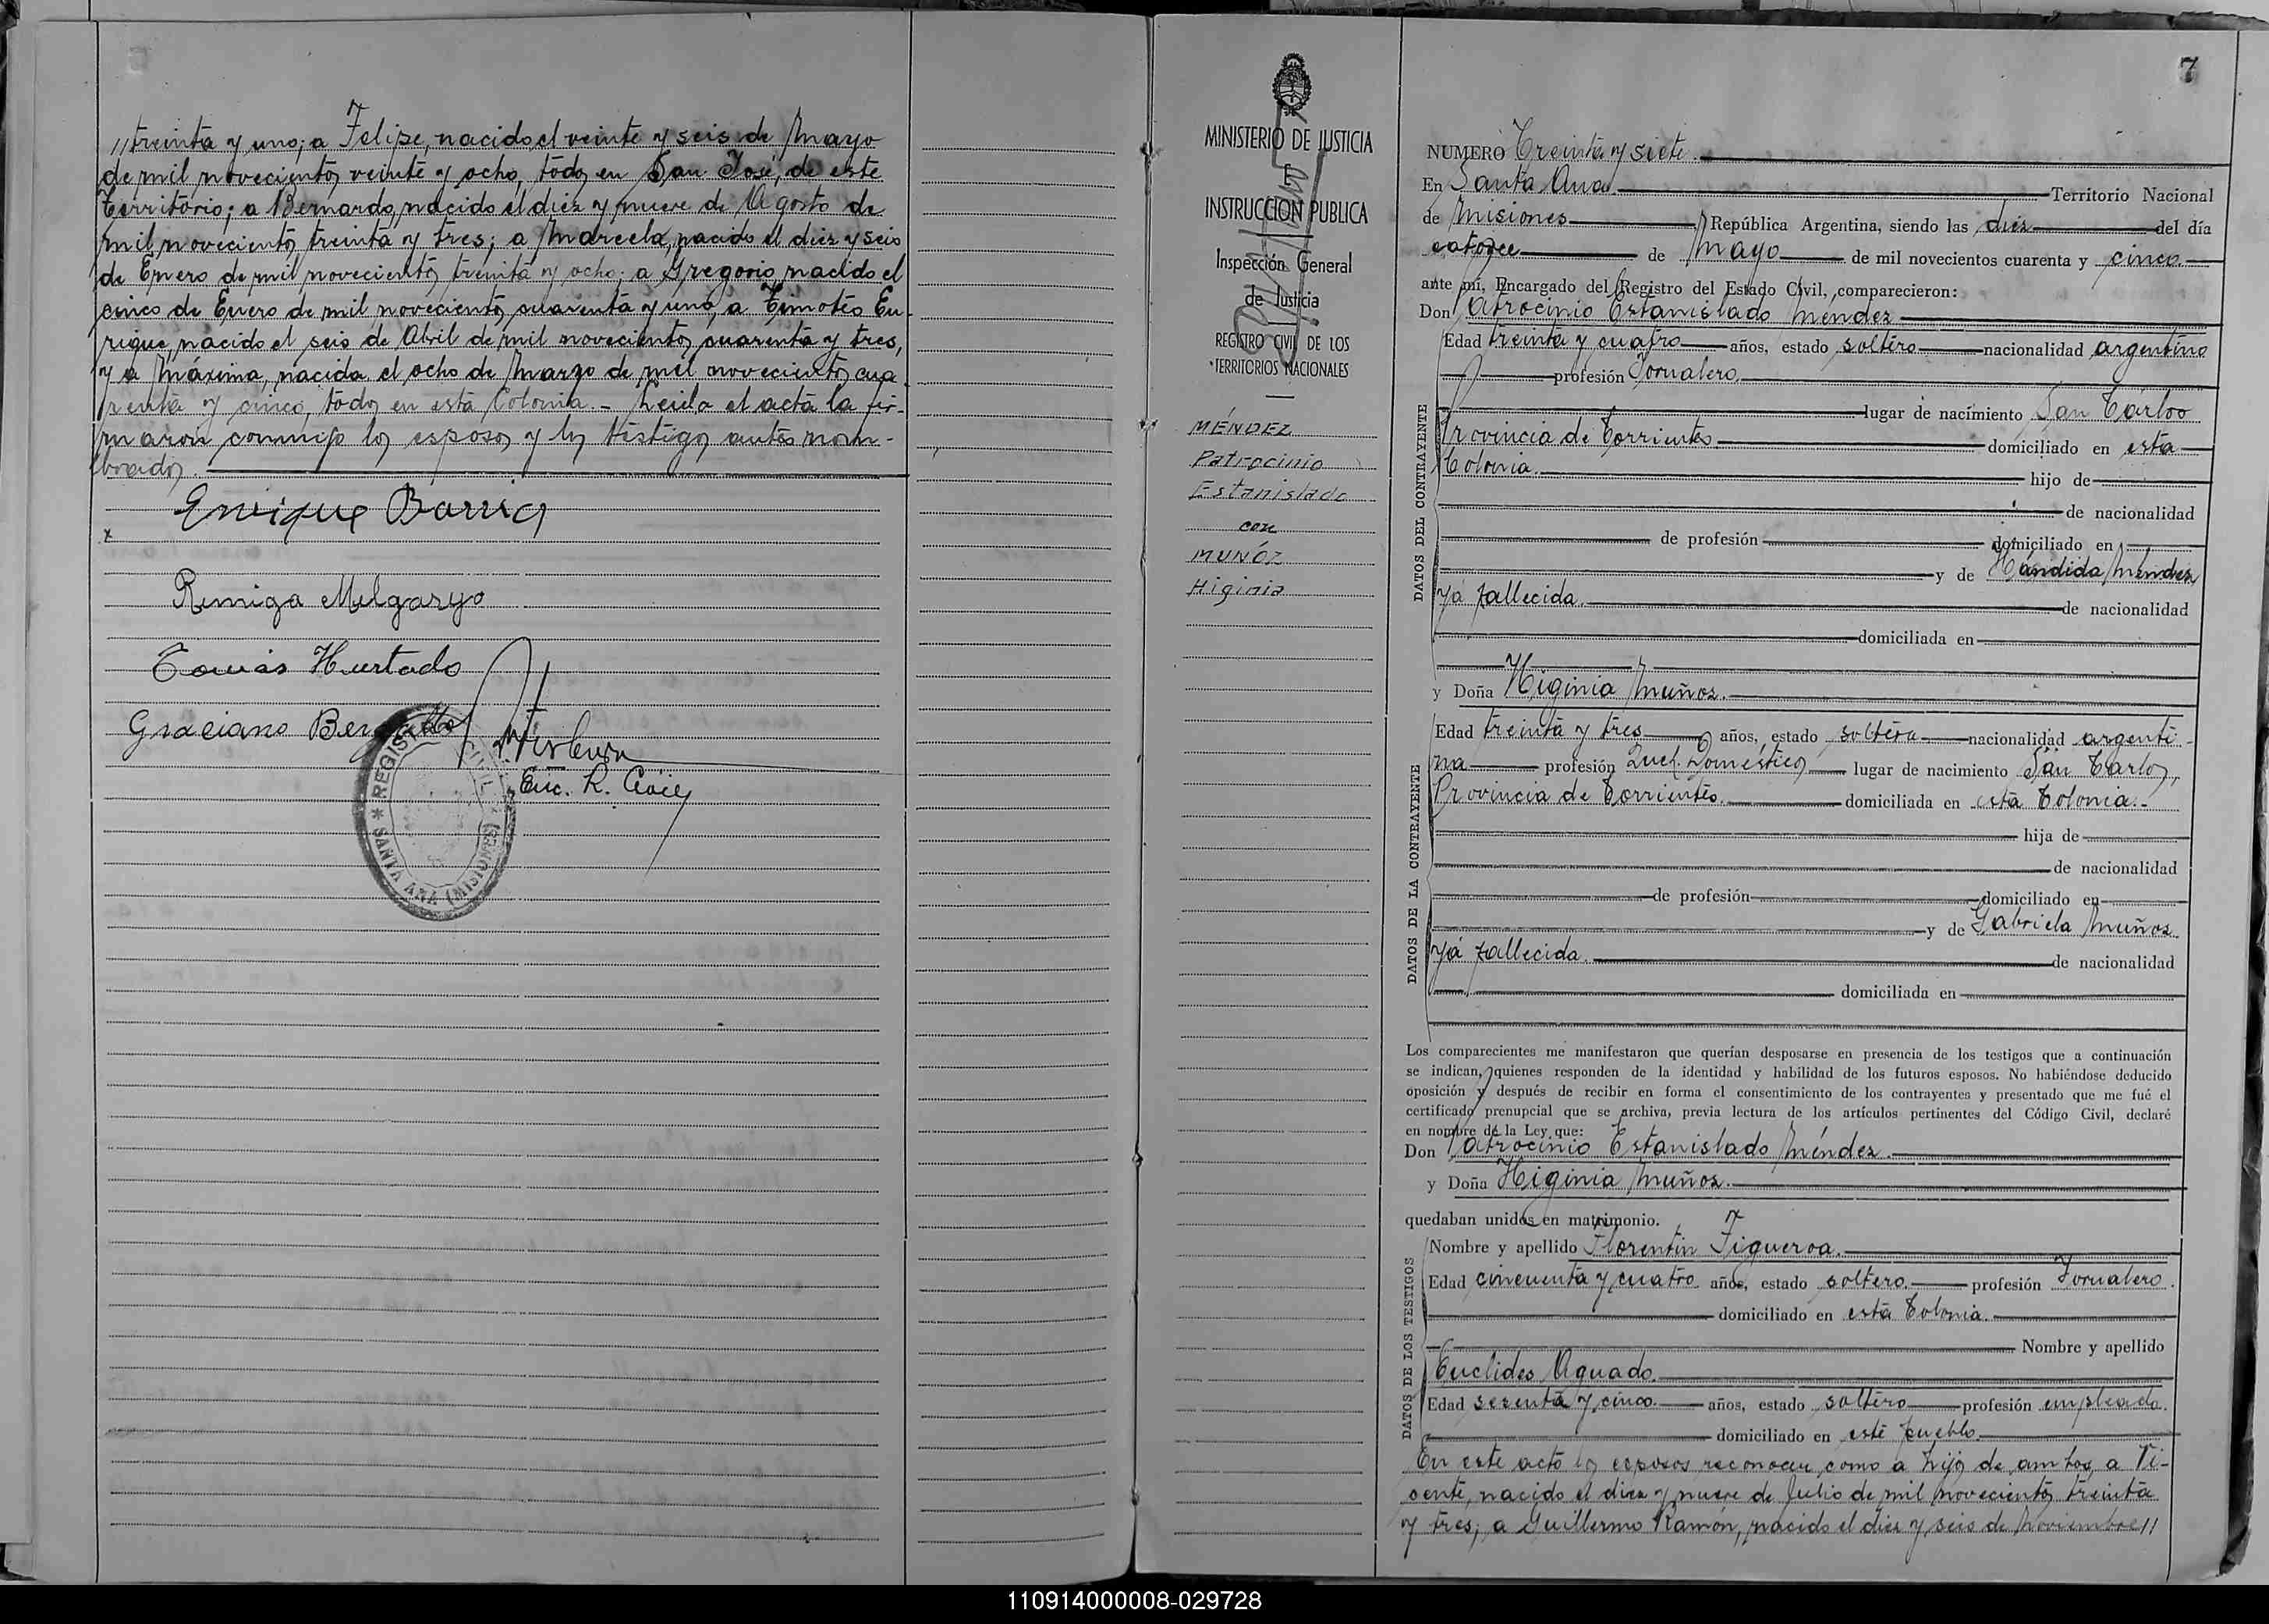 //treinta y uno; a Felipe, nacido el veinte y seis de Mayo
de mil novecientos veinte y ocho, todos en San José, de este
Territorio; a Bernardo, nacido el diez y nueve de Agosto de
mil novecientos treinta y tres; a Marcela, nacido el diez y seis
de Enero de mil novecientos treinta y ocho; a Gregorio, nacido el
cinco de Enero de mil novecientos cuarenta y uno, a Timoteo En
rique, nacido el seis de Abril de mil novecientos cuarenta y tres,
y a Máxima, nacida el ocho de Marzo de mil novecientos cua
renta y cinco, todos en esta Colonia.- Leida el acta la fir-
maron conmigo los esposos y los testigos antes nom-
brados.
Enrique
Remiga Melgarejo
Tomás Hurtado
Graciano
Enc. R. Civil
REGISTRO CIVIL
SANTA ANA (MISIONES)
MINISTERIO DE JUSTICIA
INSTRUCCION PUBLICA
Inspección General
de Justicia
REGISTRO CIVIL DE LOS
TERRITORIOS NACIONALES
MÉNDEZ
Patrocinio
Estanislado
con
MUÑÓZ
Higinia
7
NUMERO Treinta y siete.
En Santa Ana Territorio Nacional
de Misiones República Argentina, siendo las diez del día
catorce de Mayo de mil novecientos cuarenta y cinco
ante mí, Encargado del Registro del Estado Civil, comparecieron:
Don Patrocinio Estanislado Méndez
DATOS DEL CONTRAYENTE
Edad treinta y cuatro años, estado soltero nacionalidad argentino
profesión Jornalero.
lugar de nacimiento San Carlos
Provincia de Corrientes domiciliado en esta
Colonia. hijo de
de nacionalidad
de profesión domiciliado en
y de Cándida Méndez
ya fallecida. de nacionalidad
domiciliada en
y Doña Higinia Muñoz.
DATOS DE LA CONTRAYENTE
Edad treinta y tres años, estado soltera nacionalidad argenti-
na profesión Quef. Domésticos lugar de nacimiento San Carlos,
Provincia de Corrientes. domiciliada en esta Colonia.-
hija de
de nacionalidad
de profesión domiciliado en
y de Gabriela Muñoz
ya fallecida. de nacionalidad
domiciliada en
Los comparecientes me manifestaron que querían desposarse en presencia de los testigos que a continuación
se indican, quienes responden de la identidad y habilidad de los futuros esposos. No habiéndose deducido
oposición y después de recibir en forma el consentimiento de los contrayentes y presentado que me fué el
certificado prenupcial que se archiva, previa lectura de los artículos pertinentes del Código Civil, declaré
en nombre de la Ley que:
Don Patrocinio Estanislado Méndez.
y Doña Higinia Muñoz.
quedaban unidos en matrimonio.
DATOS DE LOS TESTIGOS
Nombre y apellido Florentin Figueroa.
Edad cincuenta y cuatro años, estado soltero. profesión Jornalero.
domiciliado en esta Colonia.
Nombre y apellido
Euclides Aguado.
Edad sesenta y cinco. años, estado soltero profesión empleado.
domiciliado en este pueblo.
En este acto los esposos reconocen como a hijos de ambos, a Vi-
cente, nacido el diez y nueve de Julio de mil novecientos treinta
y tres; a Guillermo Ramón, nacido el diez y seis de Noviembre//
110914000008-029728